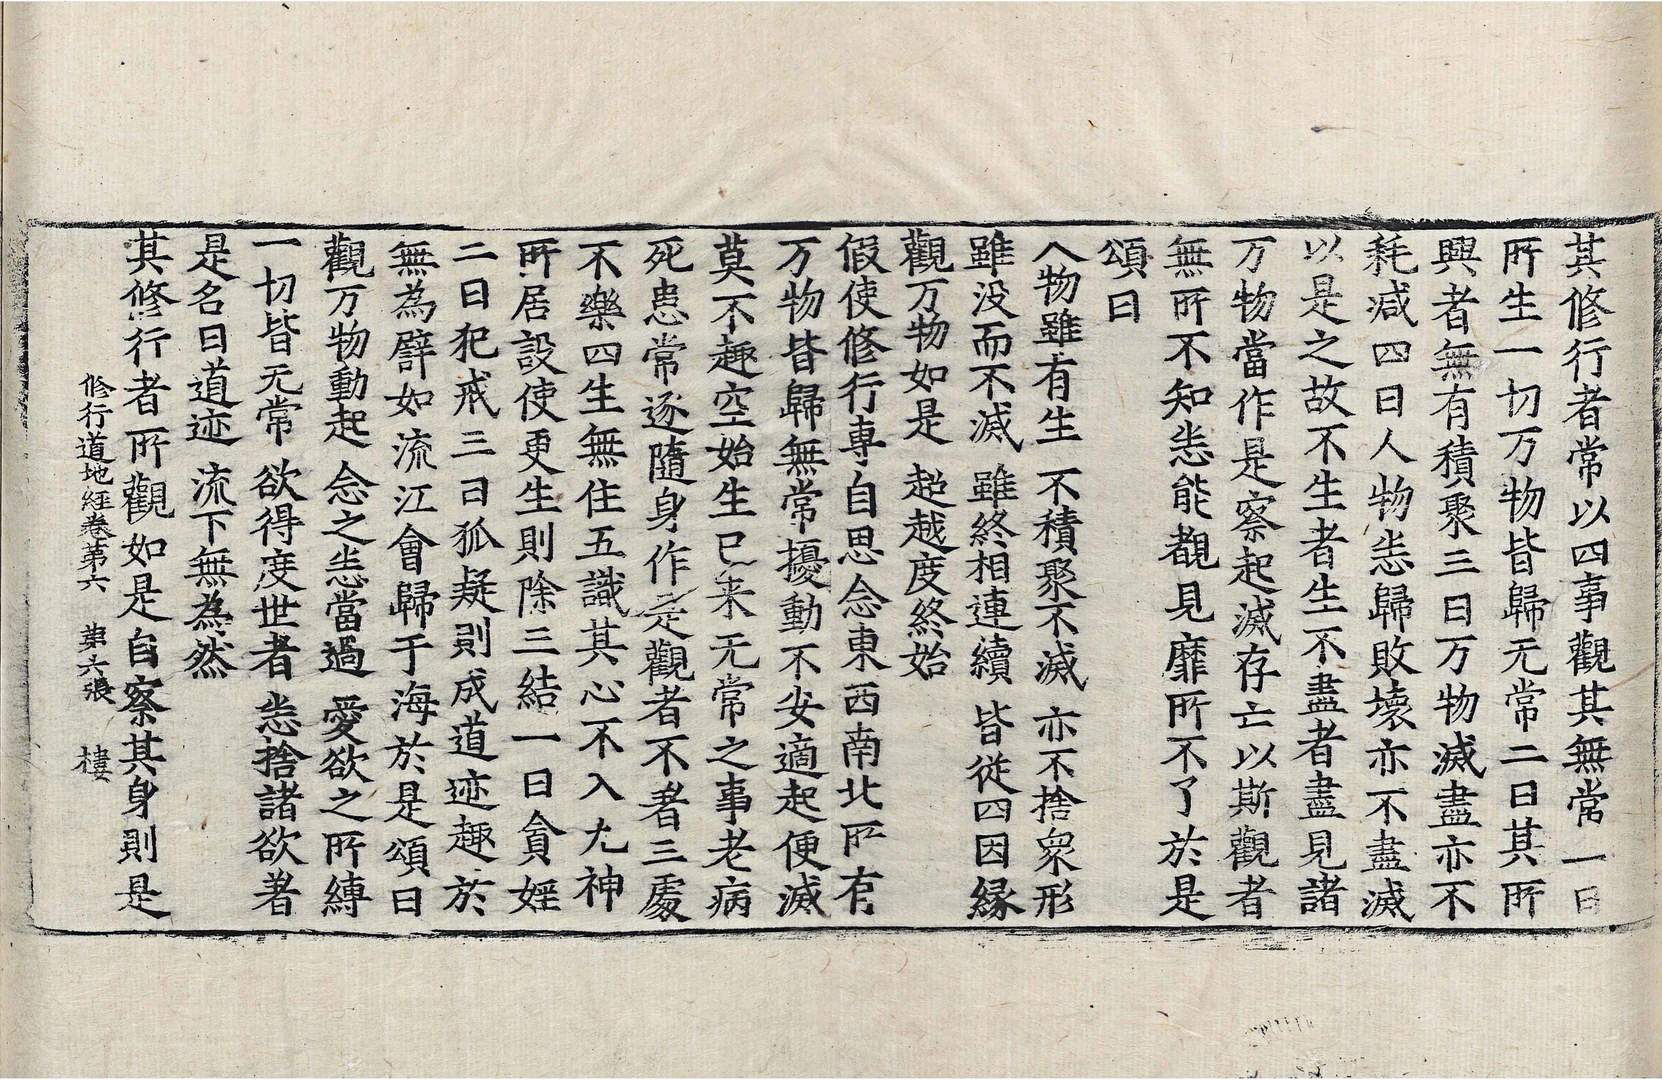 其修行者常以四事觀其無常一曰
所生一切万物皆歸无常二曰其所
興者無有積聚三曰万物滅盡亦不
耗减四曰人物恙歸敗壞亦不盡滅
以是之故不生者生不盡者盡見諸
万物當作是察起滅存亡以斯觀者
無所不知恙能覩見靡所不了於是
頌曰
人物雖有生 不積聚不滅 亦不捨衆形
雖没而不滅 雖終相連續 皆從四因緣
觀万物如是 超越度終始
假使修行專自思念東西南北所有
万物皆歸無常擾動不安適起便滅
莫不趣空始生已来无常之事老病
死患常逐隨身作是觀者不著三處
不樂四生無住五識其心不入九神
所居設使更生則除三結一曰貪婬
二曰犯戒三曰狐疑則成道迹趣於
無為譬如流江會歸于海於是頌曰
觀万物動起 念之恙當過 愛欲之所縛
一切皆无常 欲得度世者 恙捨諸欲著
是名曰道迹 流下無為然
其修行者所觀如是自察其身則是
修行道地經卷第六 第六張 樓